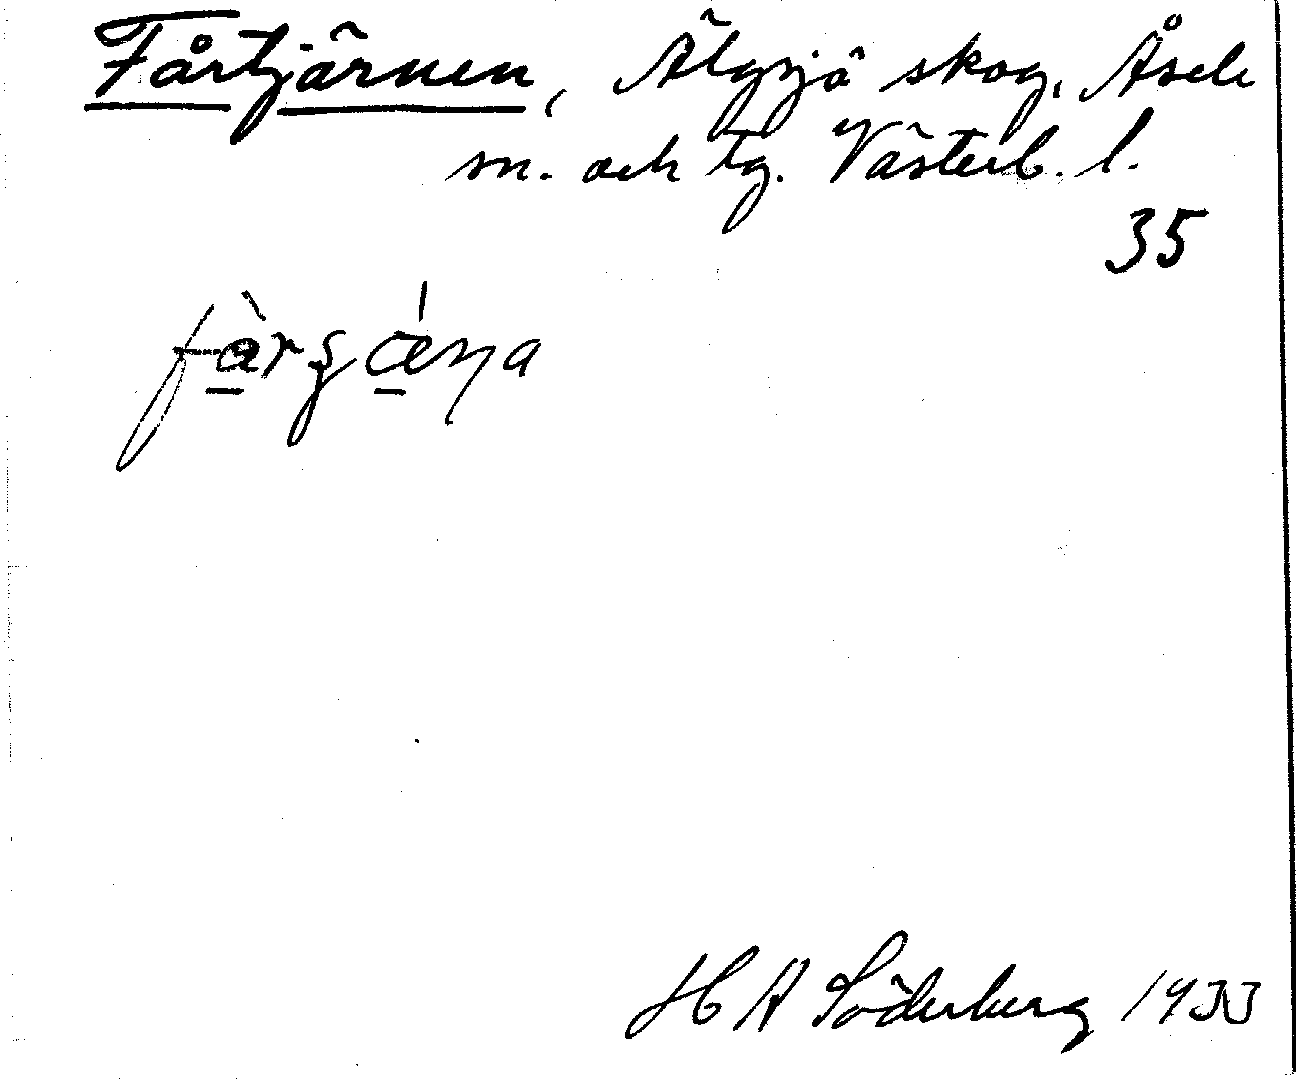 Fårtjärnen, Älgsjö skog, Åsele
sn. och tg. Västerb. l.
35
H A Söderberg 1933